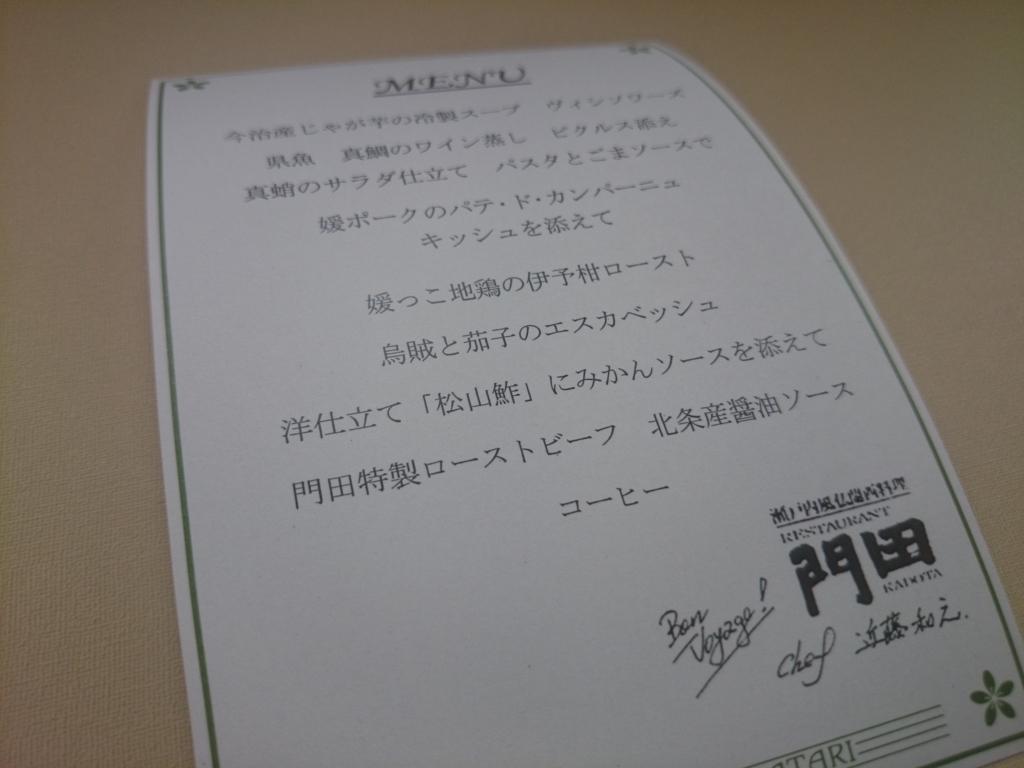 MENU
今治産じゃが芋の冷製スープ ヴィシソワーズ
県魚 真鯛のワイン蒸し ピクルス添え
真蛸のサラダ仕立て パスタとごまソースで
媛ポークのパテ・ド・カンパーニュ
キッシュを添えて
媛っこ地鶏の伊予柑ロースト
烏賊と茄子のエスカベッシュ
洋仕立て「松山鮓」にみかんソースを添えて
門田特製ローストビーフ 北条産醤油ソース
コーヒー
瀬戸内風仏蘭西料理
RESTAURANT
門田
KADOTA
Bon
Voyage!
Chef 近藤和之.
ATARI